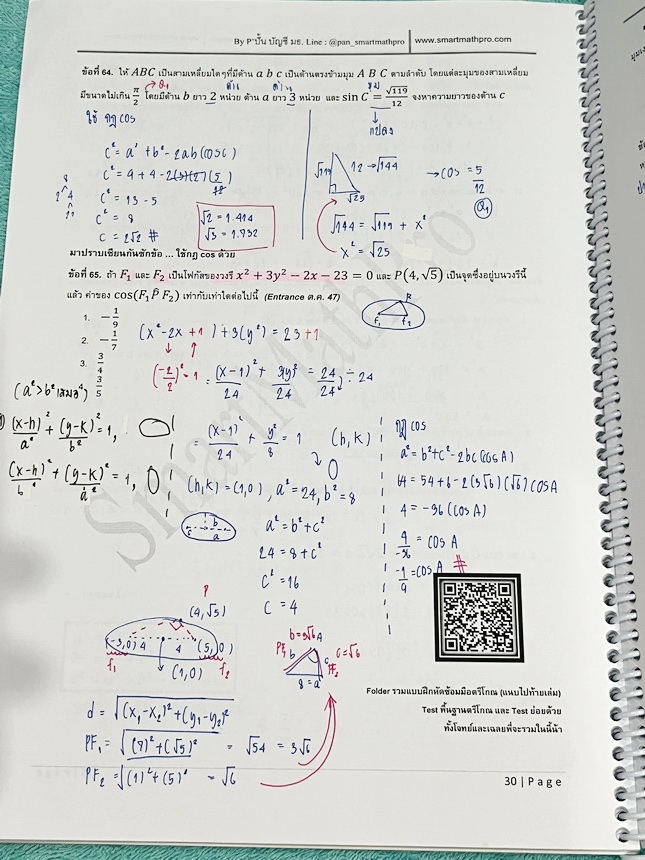 By P'ปั้น บัญชี มธ. Line : @pan_smartmathpro | www.smartmathpro.com
ข้อที่ 64. ให้ ABC เป็นสามเหลี่ยมใดๆที่มีด้าน a b c เป็นด้านตรงข้ามมุม A B C ตามลำดับ โดยแต่ละมุมของสามเหลี่ยม
มีขนาดไม่เกิน π/2 โดยมีด้าน b ยาว 2 หน่วย ด้าน a ยาว 3 หน่วย และ sin C = √119/12 จงหาความยาวของด้าน c
ใช้ กฎ cos
c² = a² + b² - 2ab(cosc)
c² = 9 + 4 - 2(3)(2)(5/12)
c² = 13 - 5
c² = 8
c = 2√2 #
√2 = 1.414
√3 = 1.732
แปลง
√119 12 → √144
√25
→ cos = 5/12
Q1
√144 = √119 + x²
x² = √25
มาปราบเซียนกันซักข้อ ... ใช้กฎ cos ด้วย
ข้อที่ 65. ถ้า F₁ และ F₂ เป็นโฟกัสของวงรี x² + 3y² − 2x − 23 = 0 และ P(4, √5) เป็นจุดซึ่งอยู่บนวงรีนี้
แล้ว ค่าของ cos(F₁P̂F₂) เท่ากับเท่าใดต่อไปนี้ (Entrance ต.ค. 47)
1. −1/9
2. −1/7
3. 3/4
4. 3/5
(x² - 2x + 1) + 3(y²) = 23 + 1
(-2/2)² = 1
= (x-1)²/24 + 3(y)²/24 = 24/24 ) ÷ 24
(a² > b² เสมอ)
(x-h)²/a² + (y-k)²/b² = 1,
(x-h)²/b² + (y-k)²/a² = 1,
= (x-1)²/24 + y²/8 = 1 (h, k)
(h, k) = (1,0), a² = 24, b² = 8
a² = b² + c²
24 = 8 + c²
c² = 16
c = 4
กฎ cos
a² = b² + c² - 2bc(cosA)
64 = 54 + 6 - 2(3√6)(√6) cosA
4 = -36(cosA)
4/-36 = cosA
-1/9 = cosA #
P
(4, √5)
(-3,0) 4 4 (5,0)
f₁ f₂
(1,0)
b = 3√6 A
PF₁ b c c = √6
PF₂
8 = a
d = √(x₁-x₂)² + (y₁-y₂)²
PF₁ = √(7)² + (√5)² = √54 = 3√6
PF₂ = √(1)² + (5)² = √6
Folder รวมแบบฝึกหัดซ้อมมือตรีโกณ (แนบไปท้ายเล่ม)
Test พื้นฐานตรีโกณ และ Test ย่อยด้วย
ทั้งโจทย์และเฉลยพี่จะรวมในนี้น้า
30 | Page
SmartMathPro